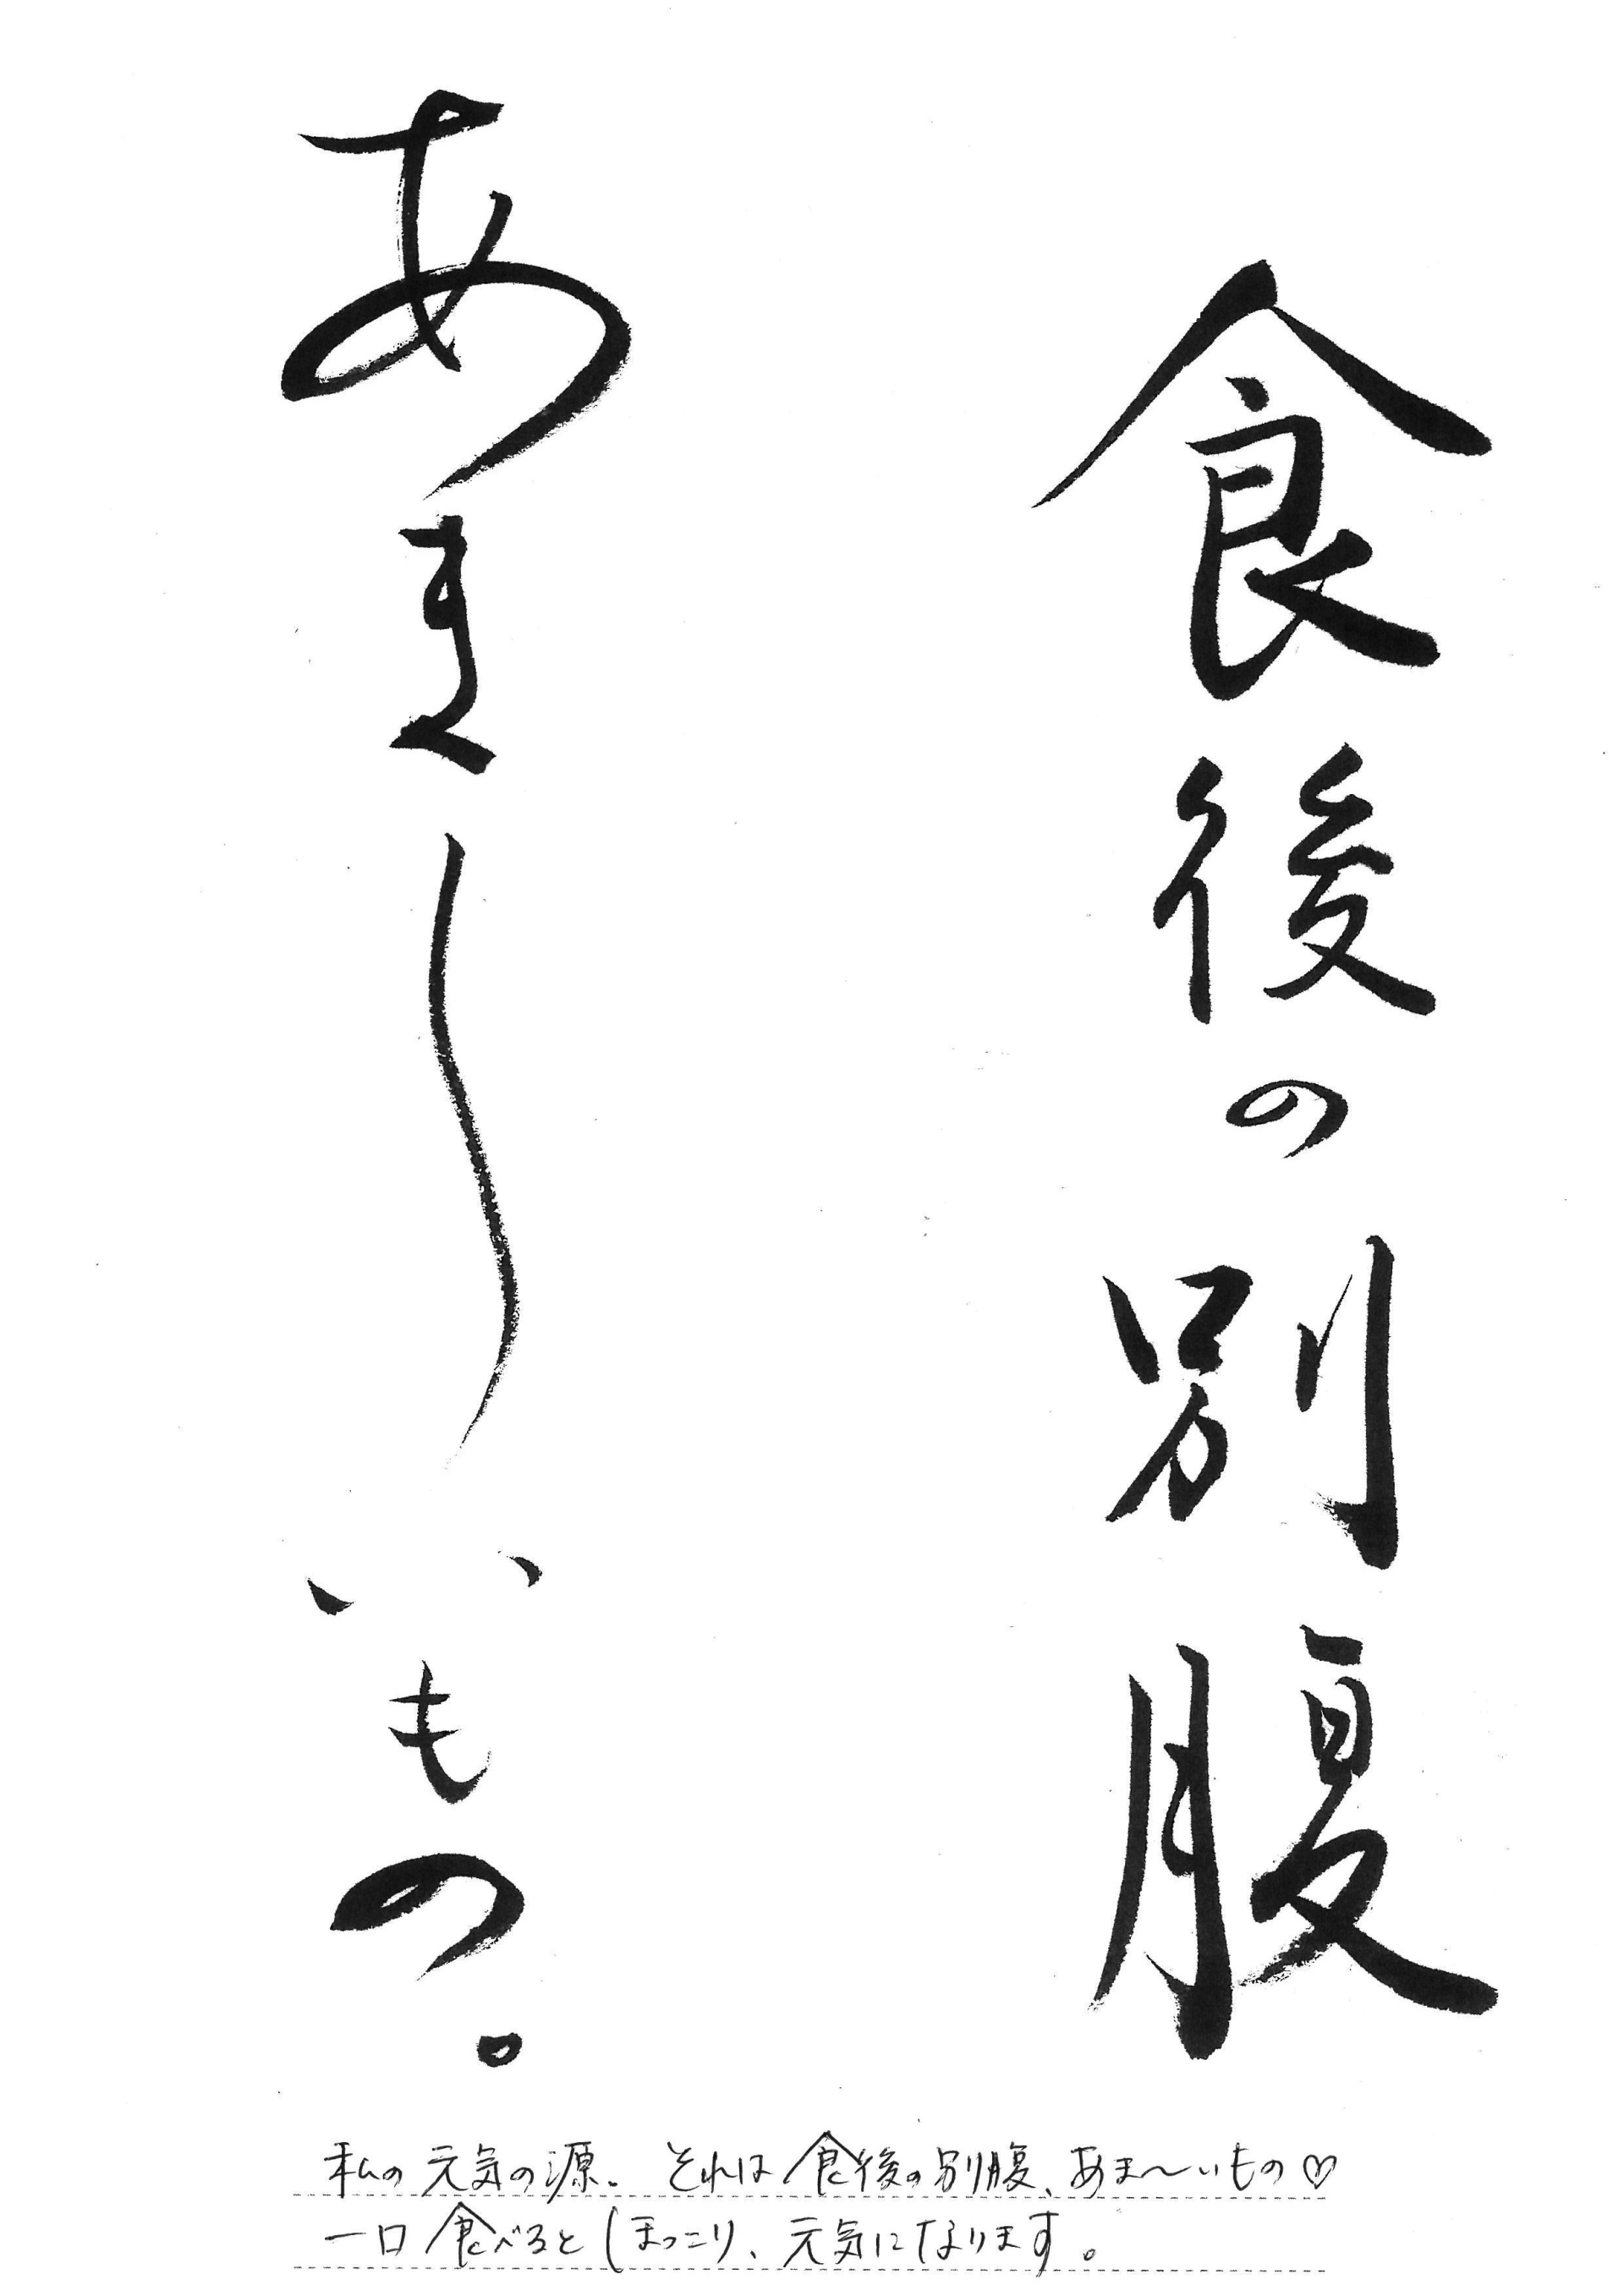 食後の別腹
あま〜いもの。
私の元気の源。それは食後の別腹、あま〜いもの♡
一口食べるとほっこり、元気になります。